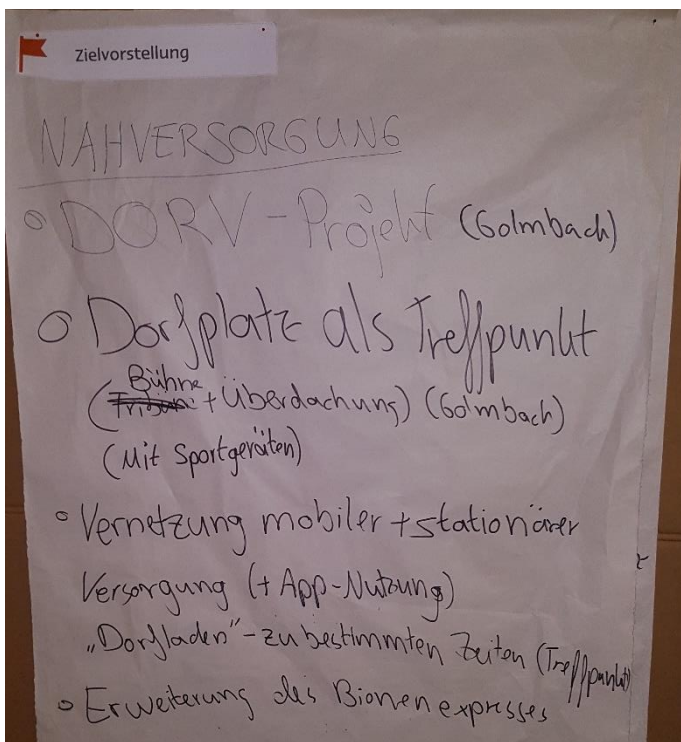 Zielvorstellung
NAHVERSORGUNG
o DORV-Projekt (Golmbach)
o Dorfplatz als Treffpunkt
Bühne
( + Überdachung) (Golmbach)
(Mit Sportgeräten)
o Vernetzung mobiler + stationärer
Versorgung (+ App-Nutzung)
„Dorfladen" - zu bestimmten Zeiten (Treffpunkt)
o Erweiterung des Bienenexpresses